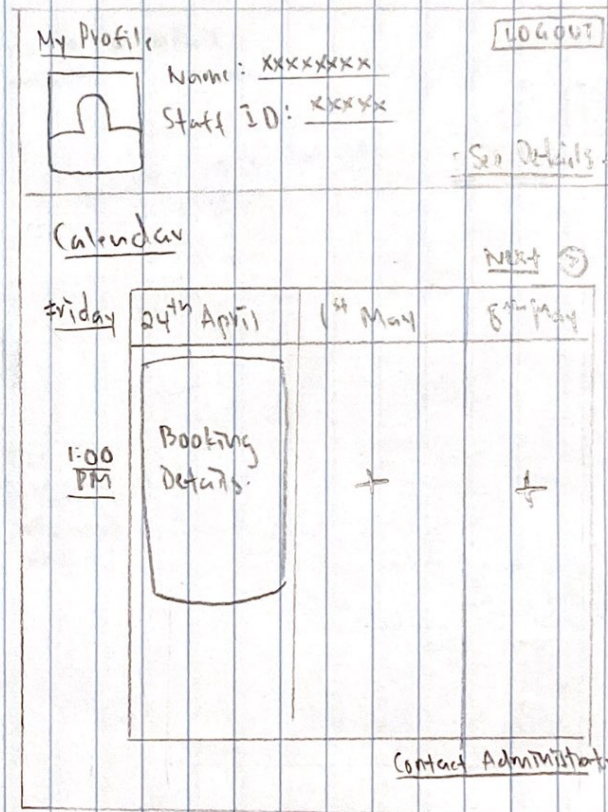 My Profile
LOGOUT
Name: xxxxxxxx
Staff ID: xxxxx
- See Details.
Calendar
Next
Friday
24th April
1st May
8th May
1:00
PM
Booking
Details.
+
+
Contact Administrator